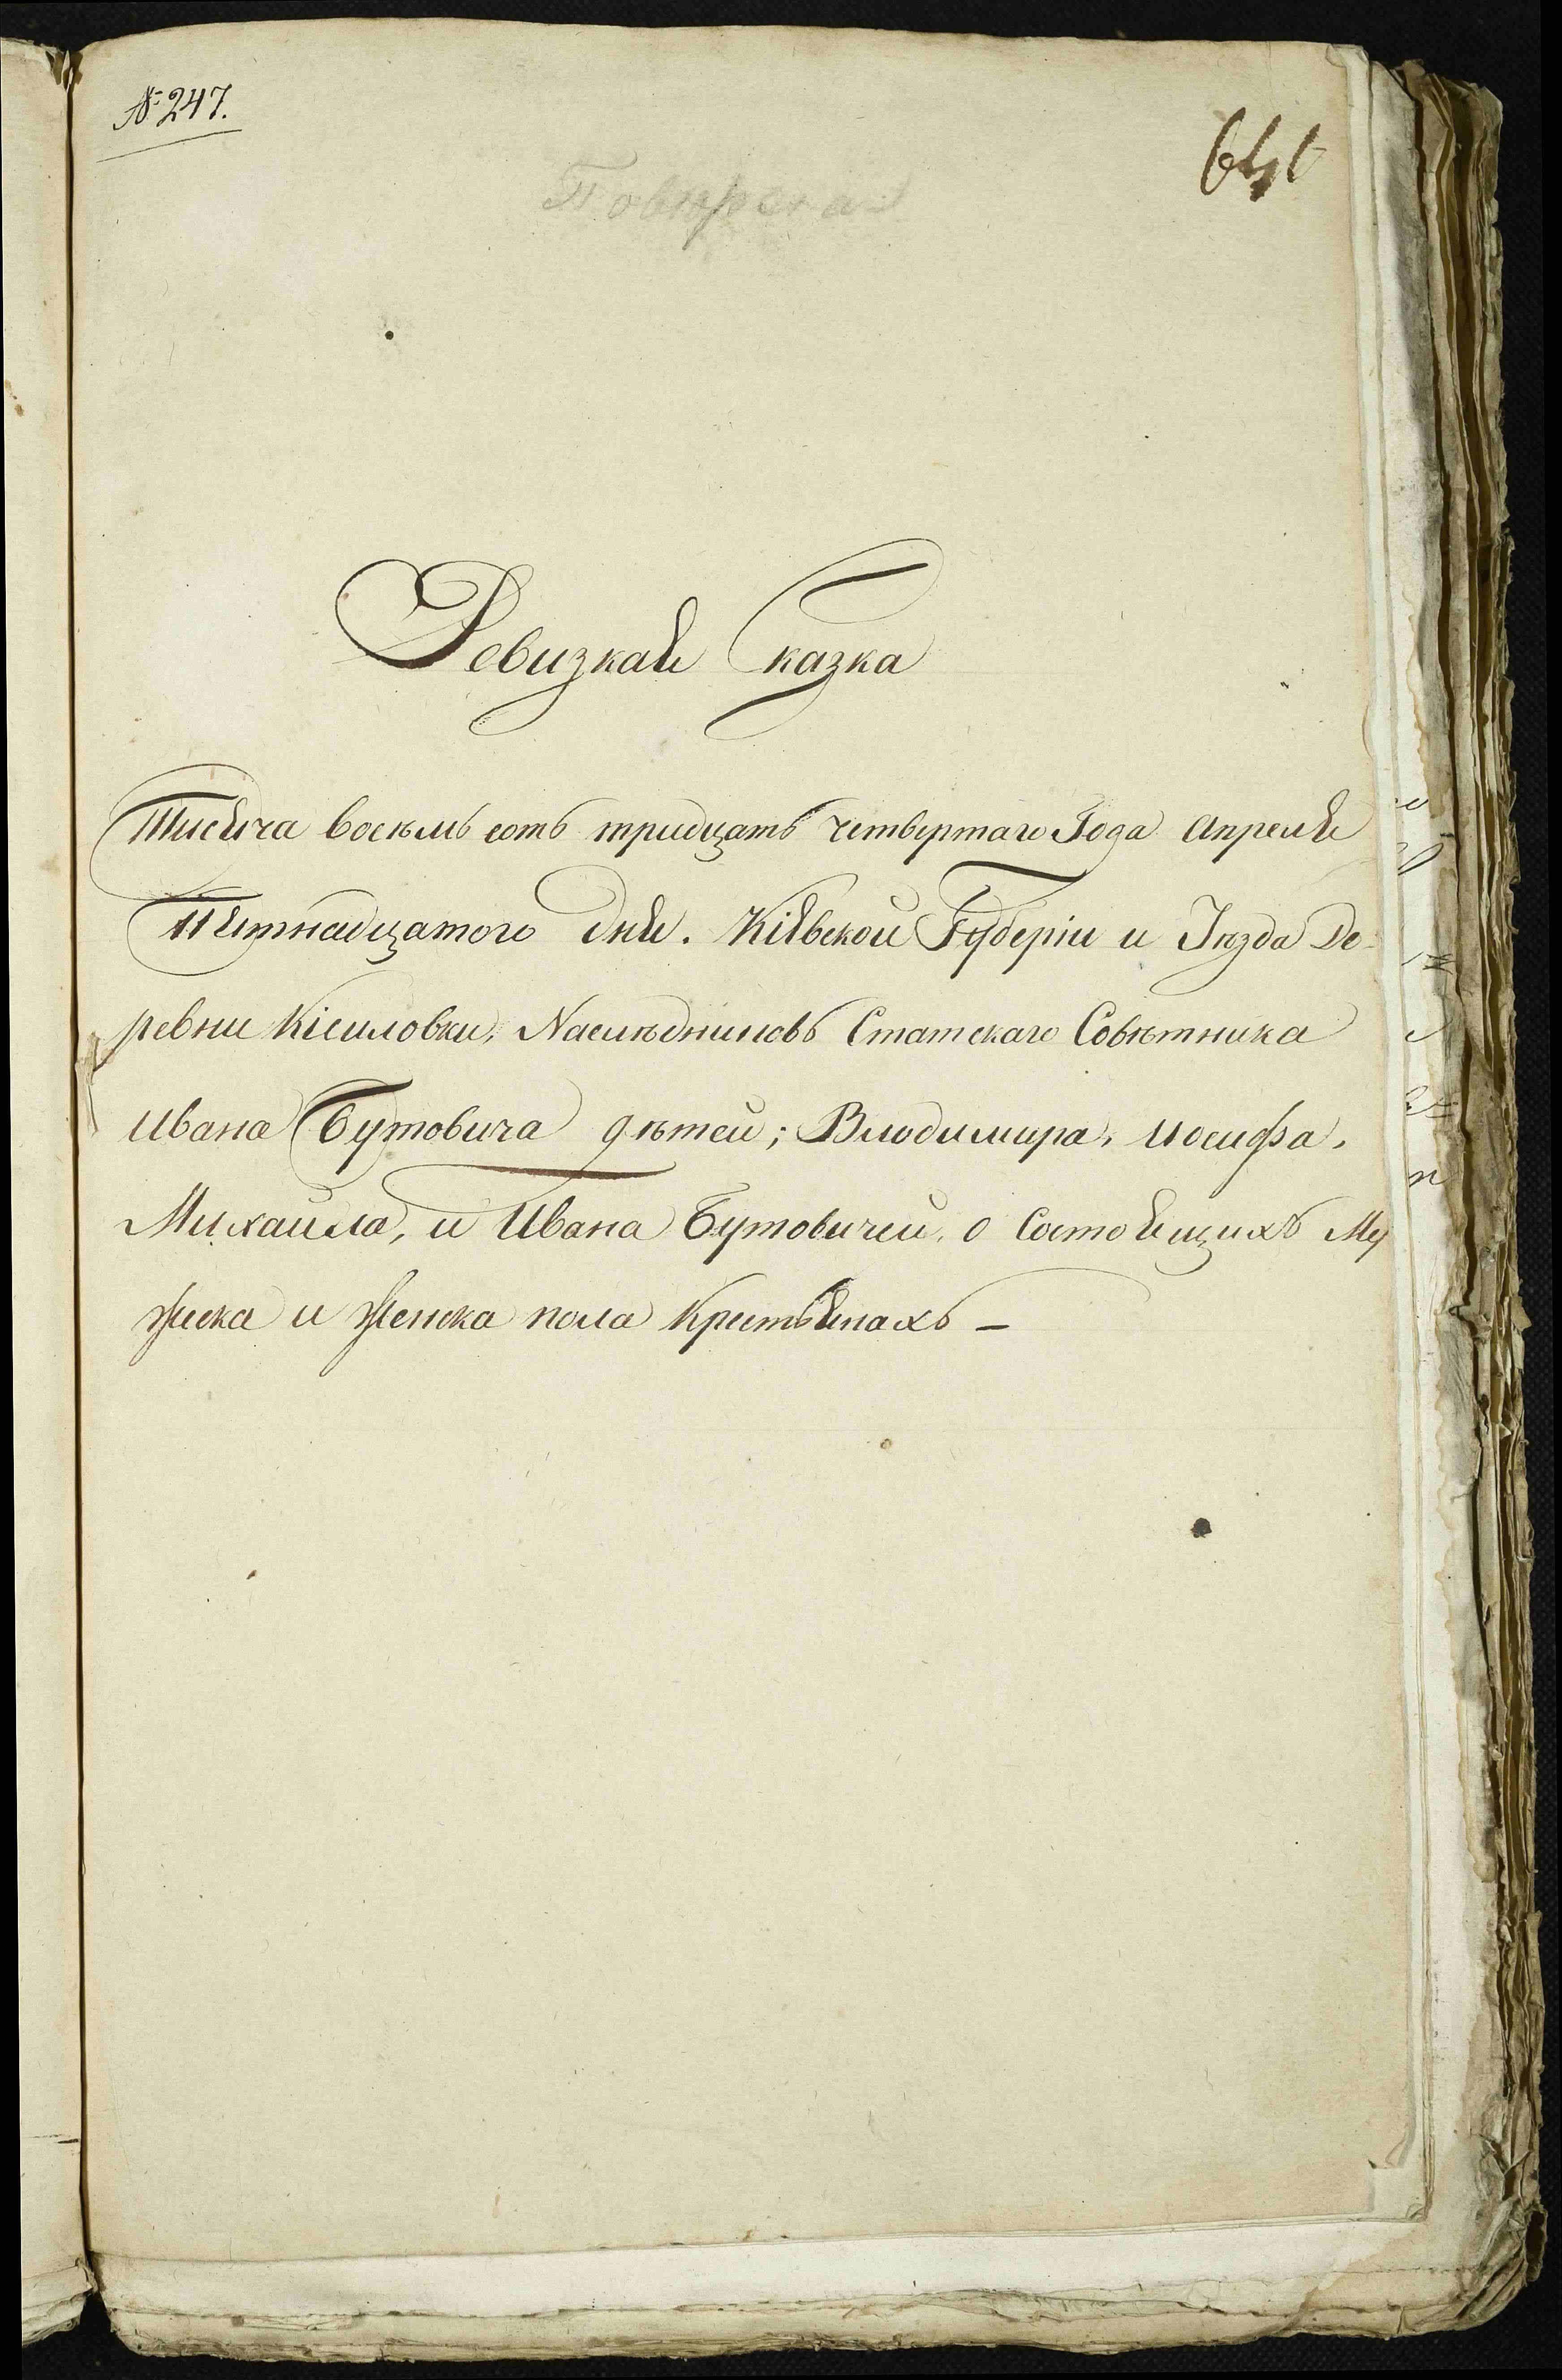 № 247.
Повѣрена
Ревизкая Сказка
Тисяча восѣмь сотъ тридцать четвертаго Года Апреля
Пятнадцатого дня. Кіявской Губеріи и Уѣзда де-
ревни Кісиловки, Наслѣдниковъ Статскаго Совѣтника
Ивана Бутовича дѣтей; Влодимира, Иосифа,
Михаила, и Ивана Бутовичей, о Состоящихъ Му
жеска и Женска пола Крестьянахъ –